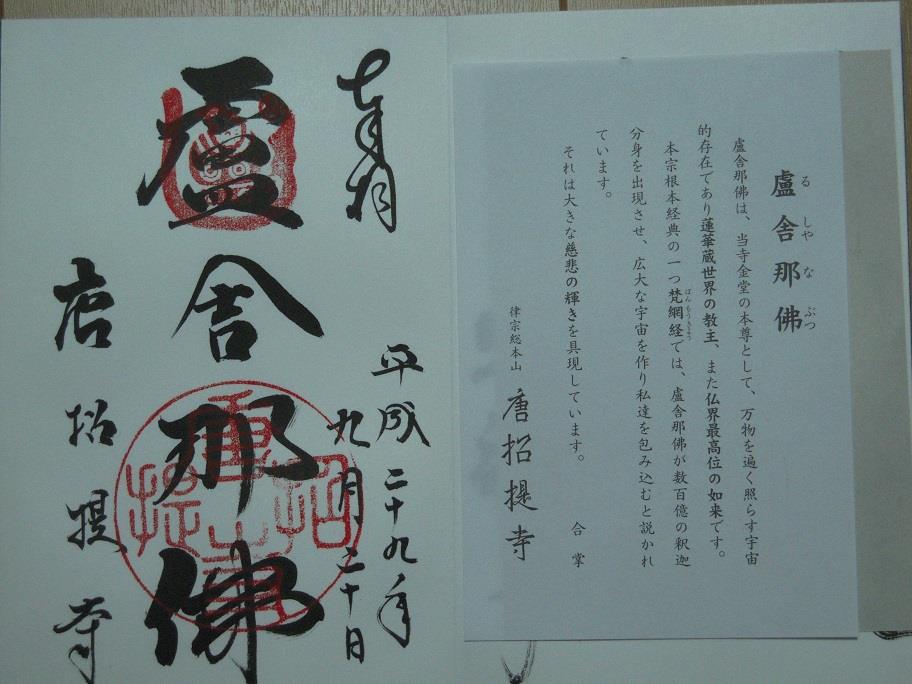 盧舎那佛
るしやなぶつ
盧舎那佛は、当寺金堂の本尊として、万物を遍く照らす宇宙
的存在であり蓮華蔵世界の教主、また仏界最高位の如来です。
本宗根本経典の一つ梵網経では、盧舎那佛が数百億の釈迦
ぼんもうきょう
分身を出現させ、広大な宇宙を作り私達を包み込むと説かれ
ています。
それは大きな慈悲の輝きを具現しています。
合掌
律宗総本山 唐招提寺
奉拝
平成二十九年
九月二十日
盧舎那佛
唐招提寺